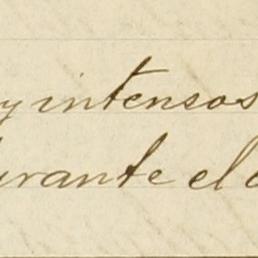 y intensos
durante el